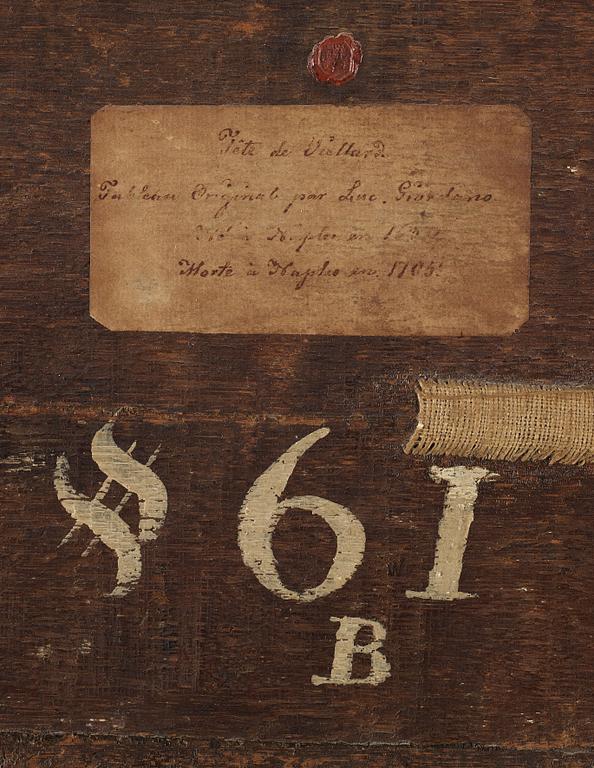 Tête de Viellard.
Tableau Original par Luc. Giordano
Né à Naples en
Morte à Naples en 1705.
61
B